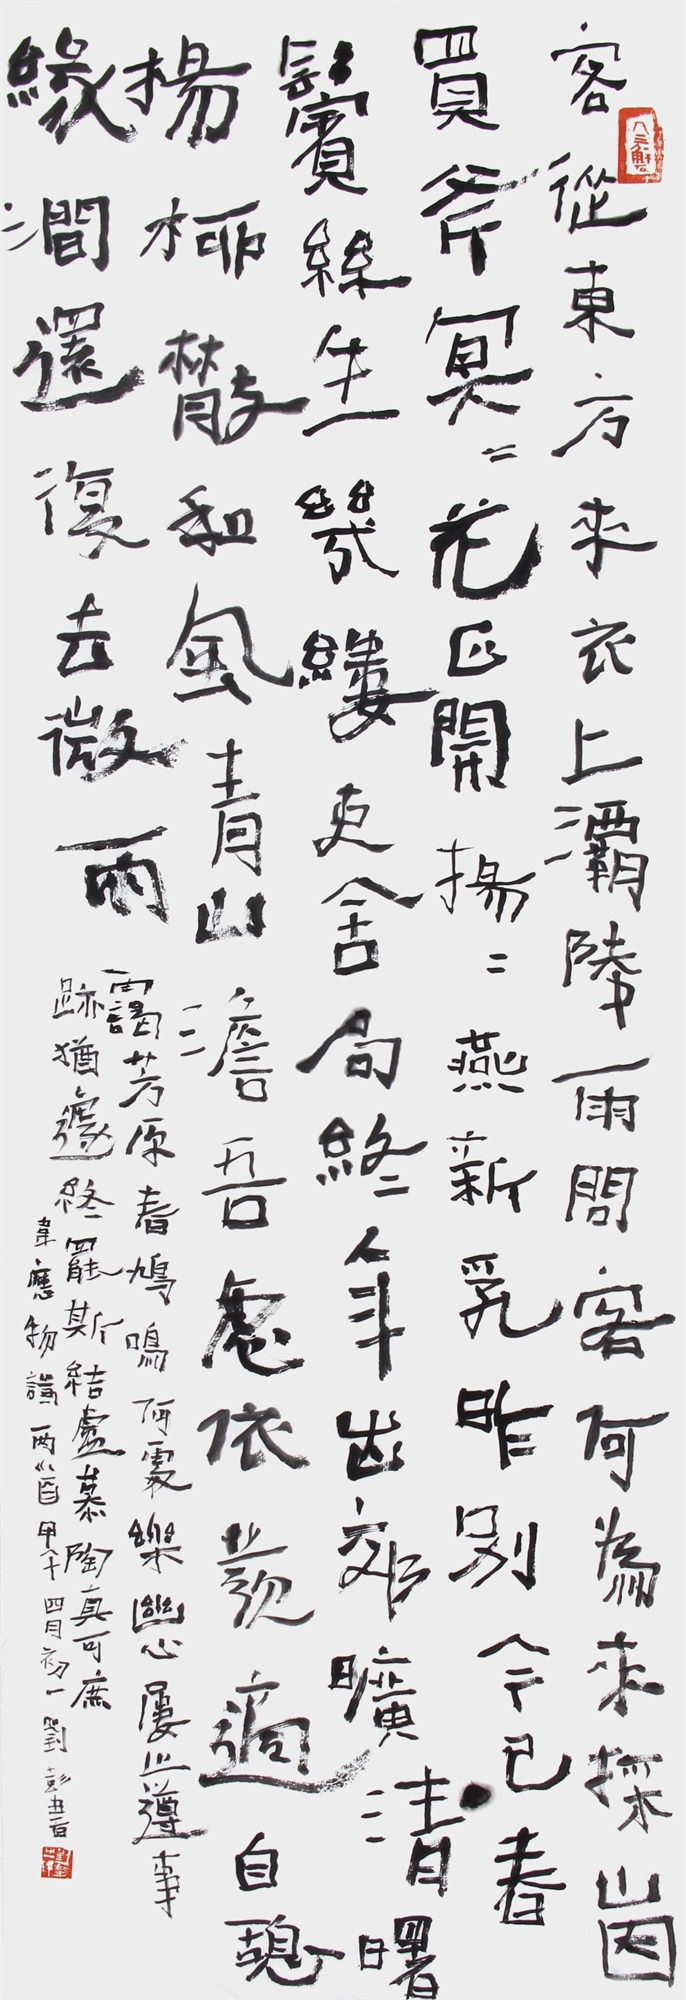 客從東方來衣上灞陵雨問客何為來採山因
買斧冥々花正開揚々燕新乳昨別今已春
鬢絲生幾縷吏舍局終年出郊曠清曙
揚柳散和風青山澹吾慮依叢適自憩
緣澗還復去微雨
靄芳原春鳩鳴何處樂幽心屢止遵事
跡猶遽終罷斯結廬慕陶真可庶
韋應物詩兩首甲午四月初一劉彭書